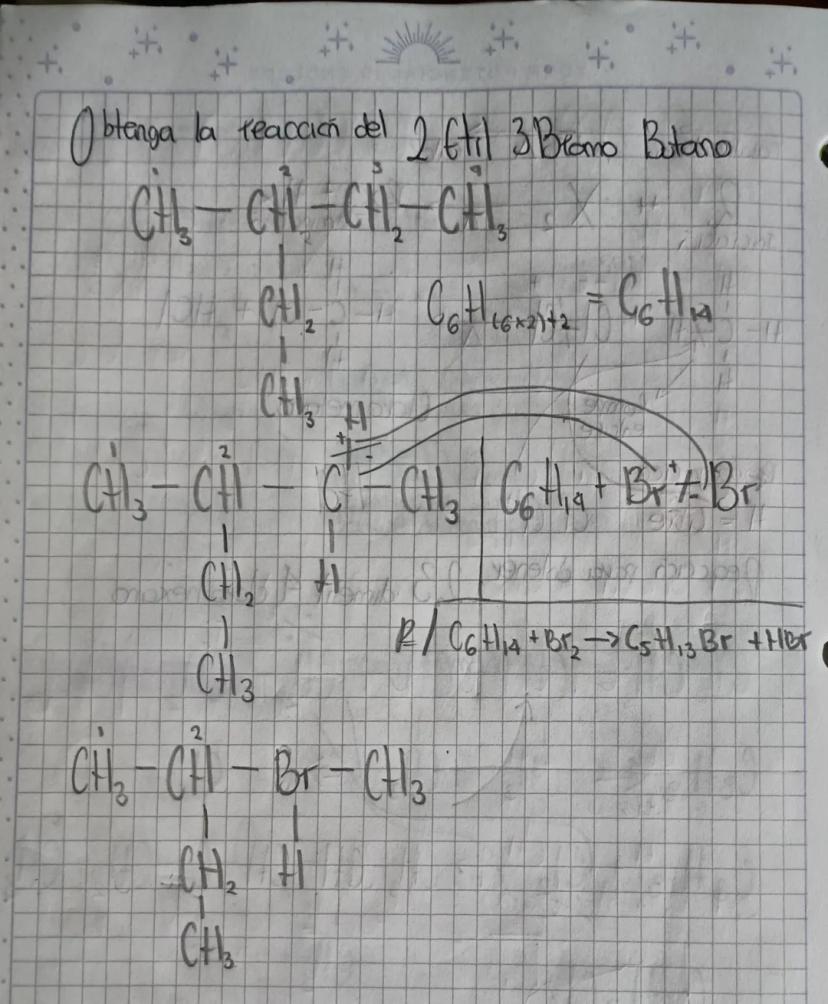 Obtenga la reacción del 2 Etil 3 Bromo Butano
1 2 3 4
CH₃ — CH — CH₂ — CH₃
|
CH₂ C₆H₍₆ₓ₂₎₊₂ = C₆H₁₄
|
CH₃
H
1 2 + -
CH₃ — CH — C — CH₃ | C₆H₁₄ + Br⁺/-Br
| |
CH₂ H
|
CH₃
R/ C₆H₁₄ + Br₂ → C₅H₁₃Br + HBr
1 2
CH₃ — CH — Br — CH₃
| |
CH₂ H
|
CH₃